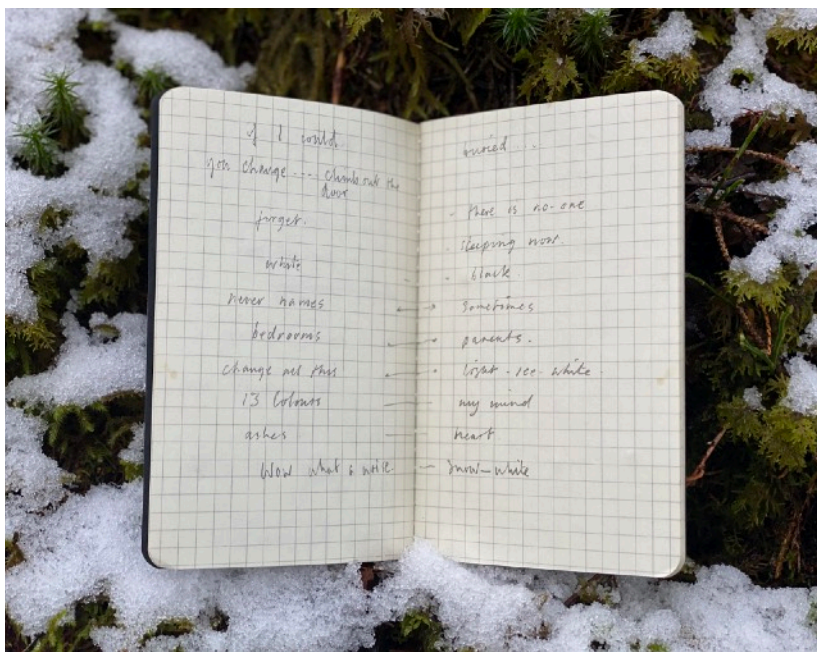 if I could
you change ... climb out the
door
forget.
white
never names
bedrooms
change all this
13 Colours
ashes
Wow what a
buried ...
. there is no-one
. sleeping now.
. black.
sometimes
parents.
light. see. white.
my mind
heart
Snow-white